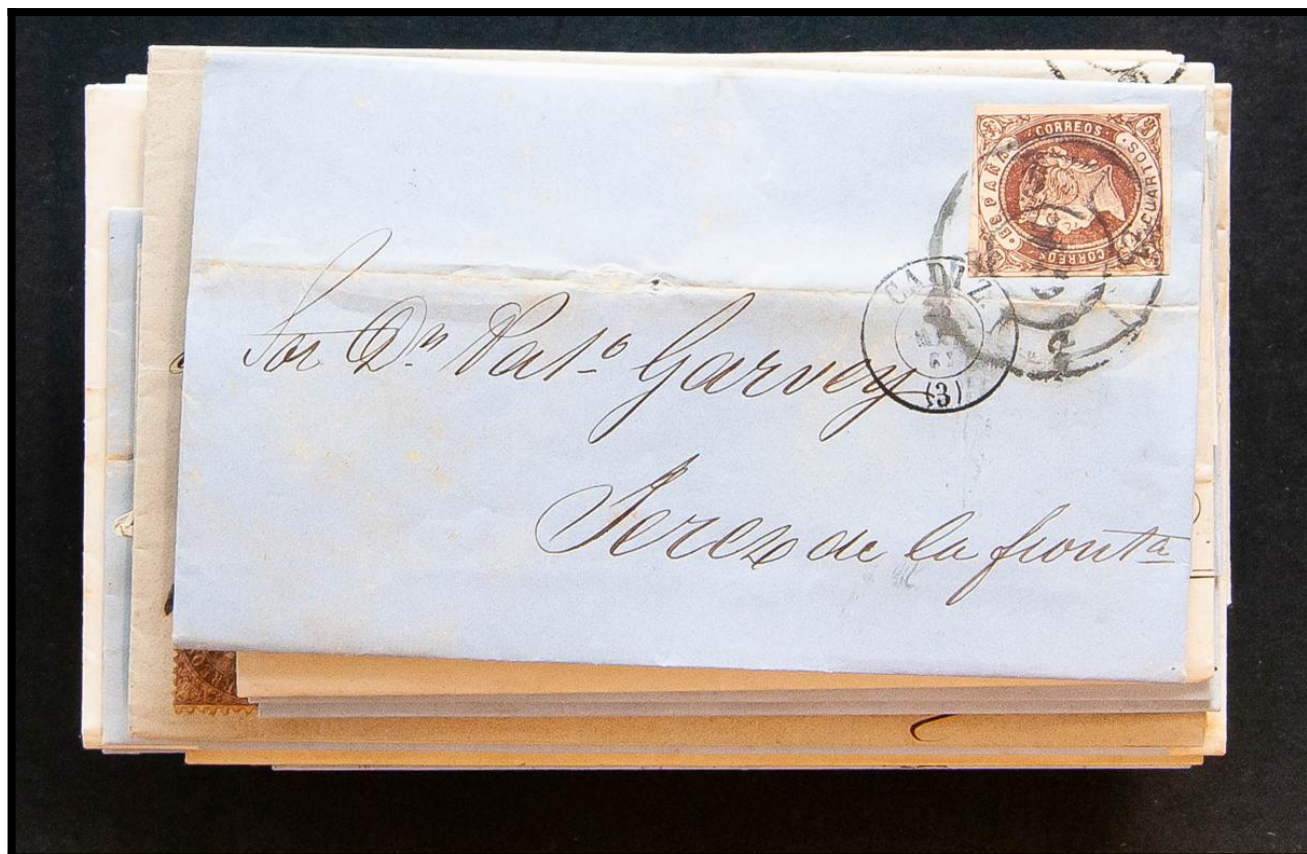 CORREOS
ESPAÑA
4 CUARTOS
CORREOS
CADIZ
(3)
Sor Dn Pato Garvey
Jerez de la fronta